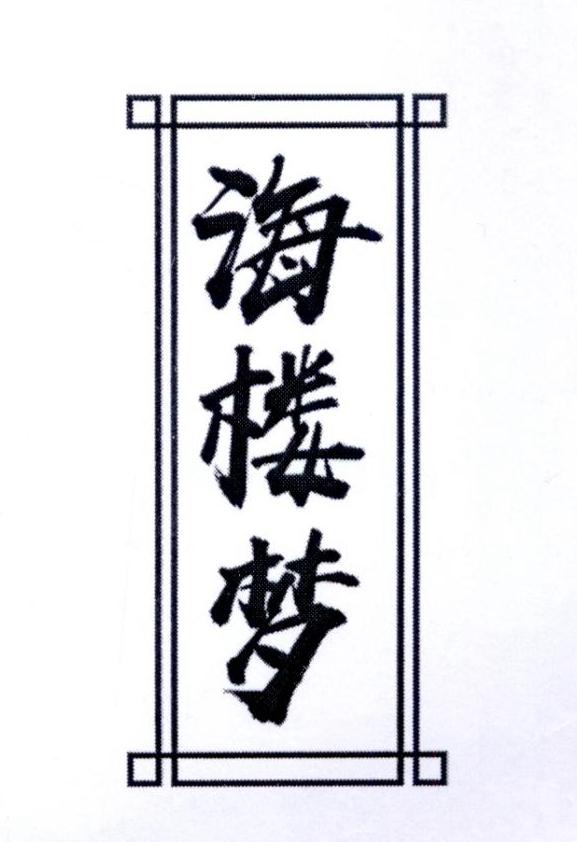 海楼梦